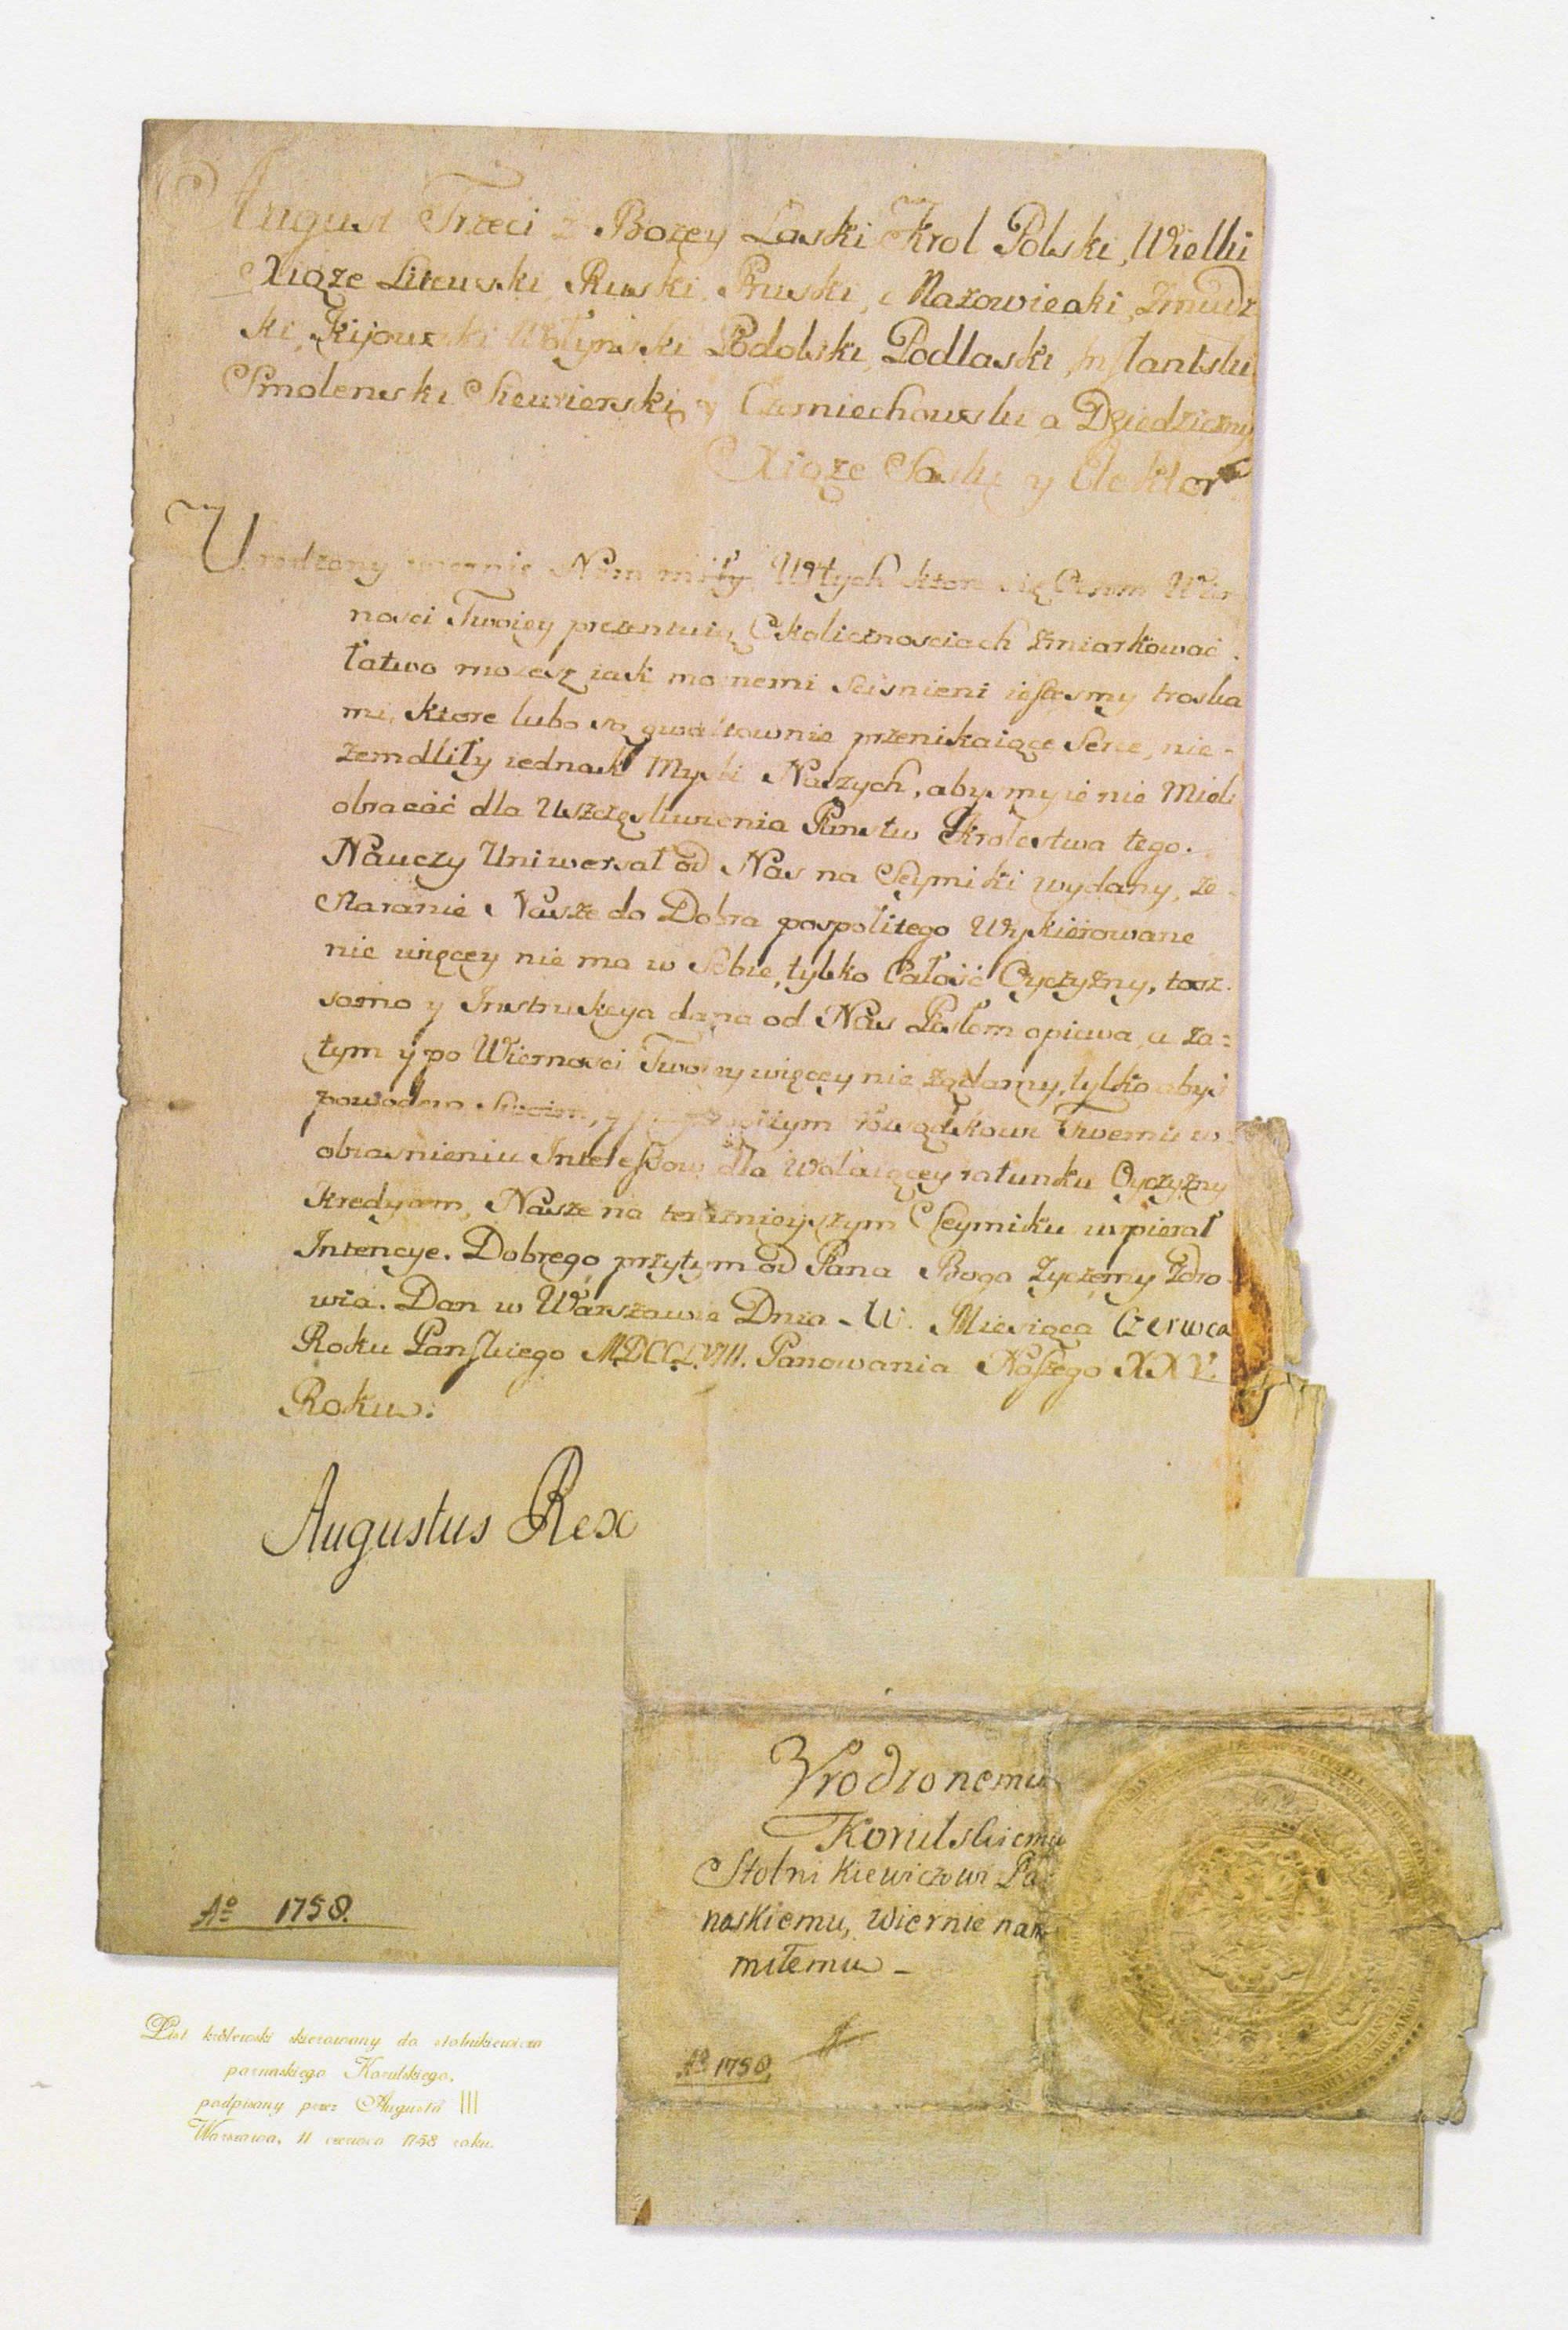 August Trzeci z Bozey Laski Krol Polski, Wielki
Xiąze Litewski, Ruski, Pruski, Mazowiecki, Zmudz
ki, Kijowski Wołynski Podolski, Podlaski, Inflantski
Smolenski Siewierski y Czerniechowski a Dziedziczny
Xiąze Saski y Elektor
Urodzony wiernie Nam miły. W tych ktore się Oczom Wier
nosci Twoiey prezentuią Okolicznosciach zmiarkowac
łatwo mozesz iak mocnemi scisnieni iestesmy troska
mi, ktore lubo są gwałtownie przenikaiące Serce, nie-
zemdliły iednak Mysli Naszych, abysmy ie nie Mieli
obracać dla Uszczęsliwienia Panstw Krolestwa tego.
Nauczy Uniwersał od Nas na Seymiki wydany, ze-
Staranie Nasze do Dobra pospolitego Wykierowane
nic więcey nie ma w Sobie, tylko Całość Oyczyzny, toz-
samo y Instrukcya dana od Nas Posłom opiewa, a za=
tym y po Wiernosci Twoiey więcey nie ządamy, tylko abyś
powodem Swoim, y przyzwoitym Rozsądkowi Twemu w
obiasnieniu Interessow dla Wołaiącey ratunku Oyczyzny
Kredytem, Nasze na teraznieyszym Seymiku wspierał
Intencye. Dobrego przytym od Pana Boga zyczemy zdro-
wia. Dan w Warszawie Dnia XI. Miesiąca Czerwca
Roku Panskiego MDCCLVIII. Panowania Naszego XXV.
Roku.
Augustus Rex
Aº 1758.
Vrodzonemu
Korulskiemu
Stolnikiewiczowi Pa
naskiemu, Wiernie nam
miłemu -
Aº 1758,
List królewski skierowany do stolnikiewicza
parnaskiego Korulskiego,
podpisany przez Augusta III
Warszawa, 11 czerwca 1758 roku.